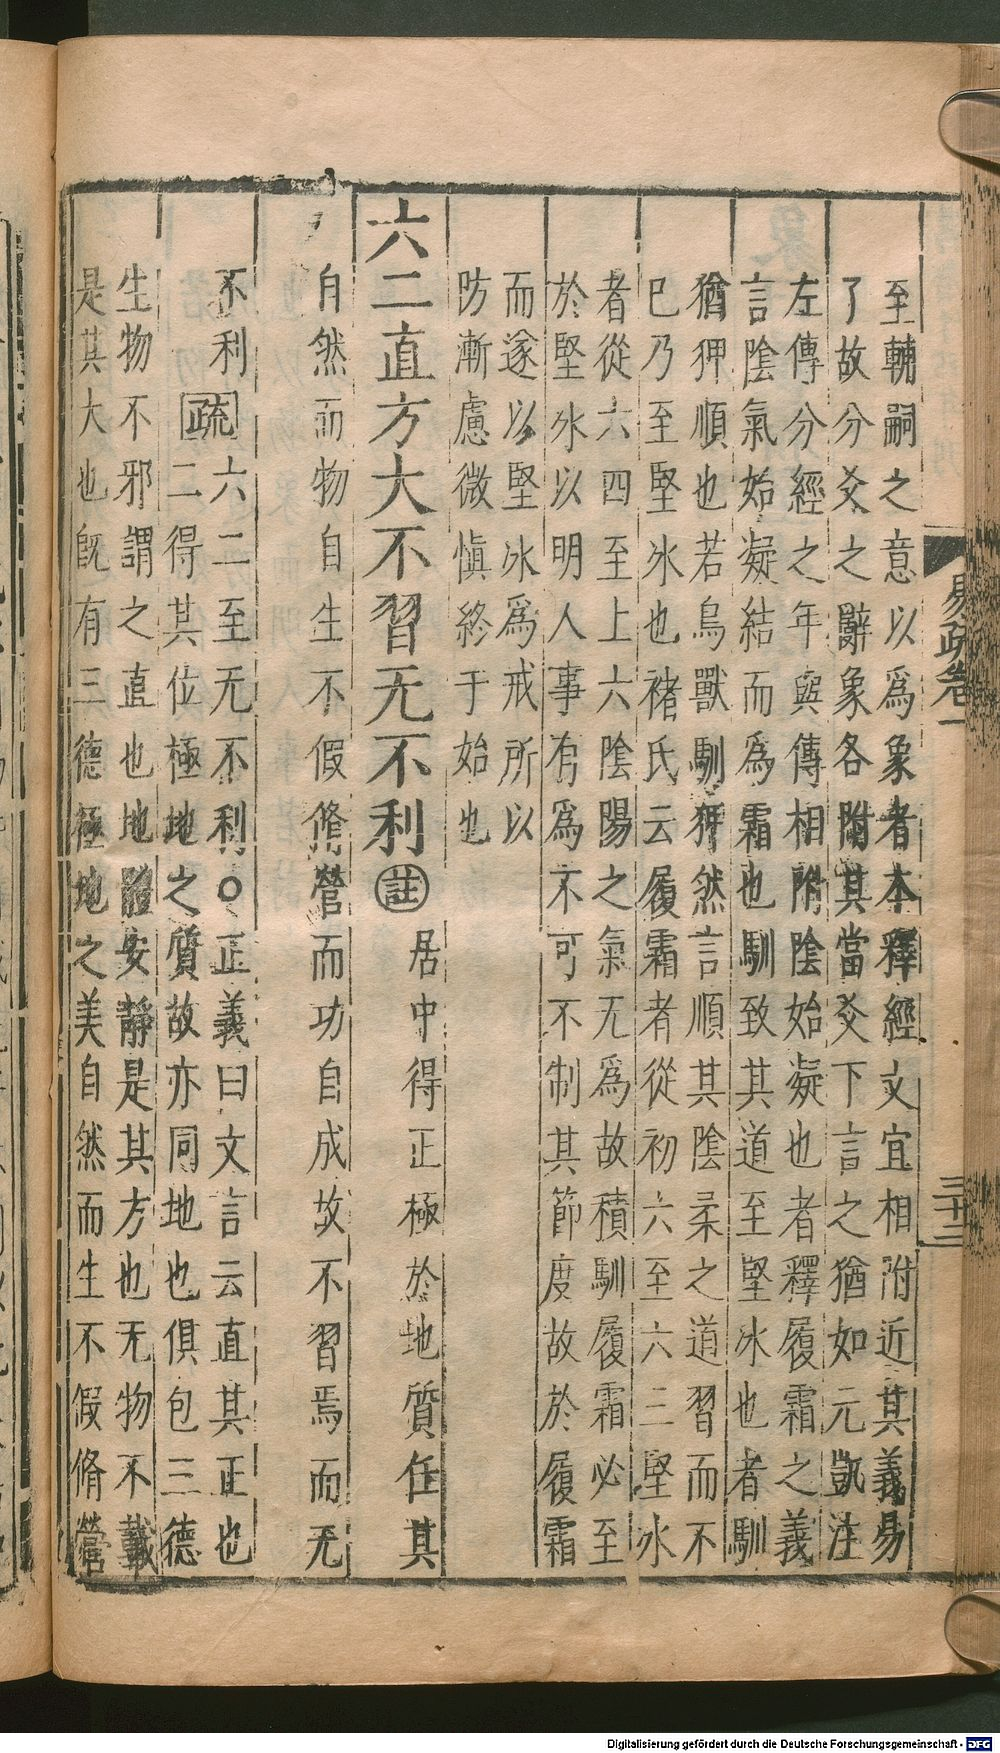 易疏卷一
三十二
至輔嗣之意以爲象者本釋經文宜相附近其義易
了故分爻之辭象各附其當爻下言之猶如元凱注
左傳分經之年與傳相附陰始凝也者釋履霜之義
言陰氣始凝結而爲霜也馴致其道至堅冰也者馴
猶狎順也若鳥獸馴狎然言順其陰柔之道習而不
已乃至堅冰也褚氏云履霜者從初六至六三堅冰
者從六四至上六陰陽之氣无爲故積馴履霜必至
於堅冰以明人事有爲不可不制其節度故於履霜
而逐以堅冰爲戒所以
防漸慮微慎終于始也
六二直方大不習无不利註居中得正極於地質任其
自然而物自生不假脩營而功自成故不習焉而无
不利疏六二至无不利○正義曰文言云直其正也
二得其位極地之質故亦同地也俱包三德
生物不邪謂之直也地體安靜是其方也无物不載
是其大也既有三德極地之美自然而生不假脩營
Digitalisierung gefördert durch die Deutsche Forschungsgemeinschaft - DFG